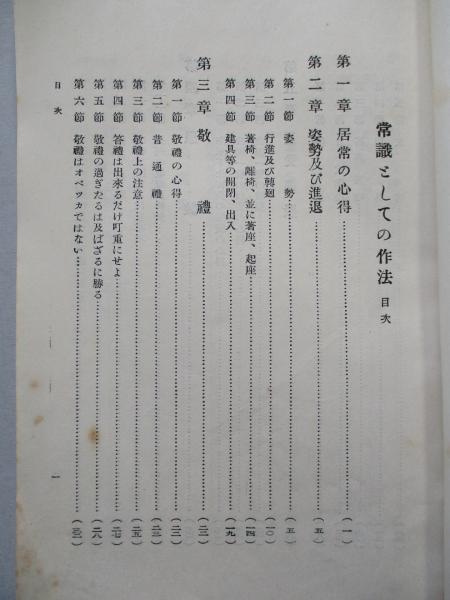 常識としての作法 目次
第一章 居常の心得……(一)
第二章 姿勢及び進退……(五)
第一節 姿勢……(五)
第二節 行進及び轉廻……(一〇)
第三節 著椅、離椅、並に著座、起座……(一四)
第四節 建具等の開閉、出入……(一九)
第三章 敬禮……(二二)
第一節 敬禮の心得……(二二)
第二節 普通禮……(二三)
第三節 敬禮上の注意……(二五)
第四節 答禮は出來るだけ叮重にせよ……(二七)
第五節 敬禮の過ぎたるは及ばざるに勝る……(二八)
第六節 敬禮はオベッカではない……
目次
一